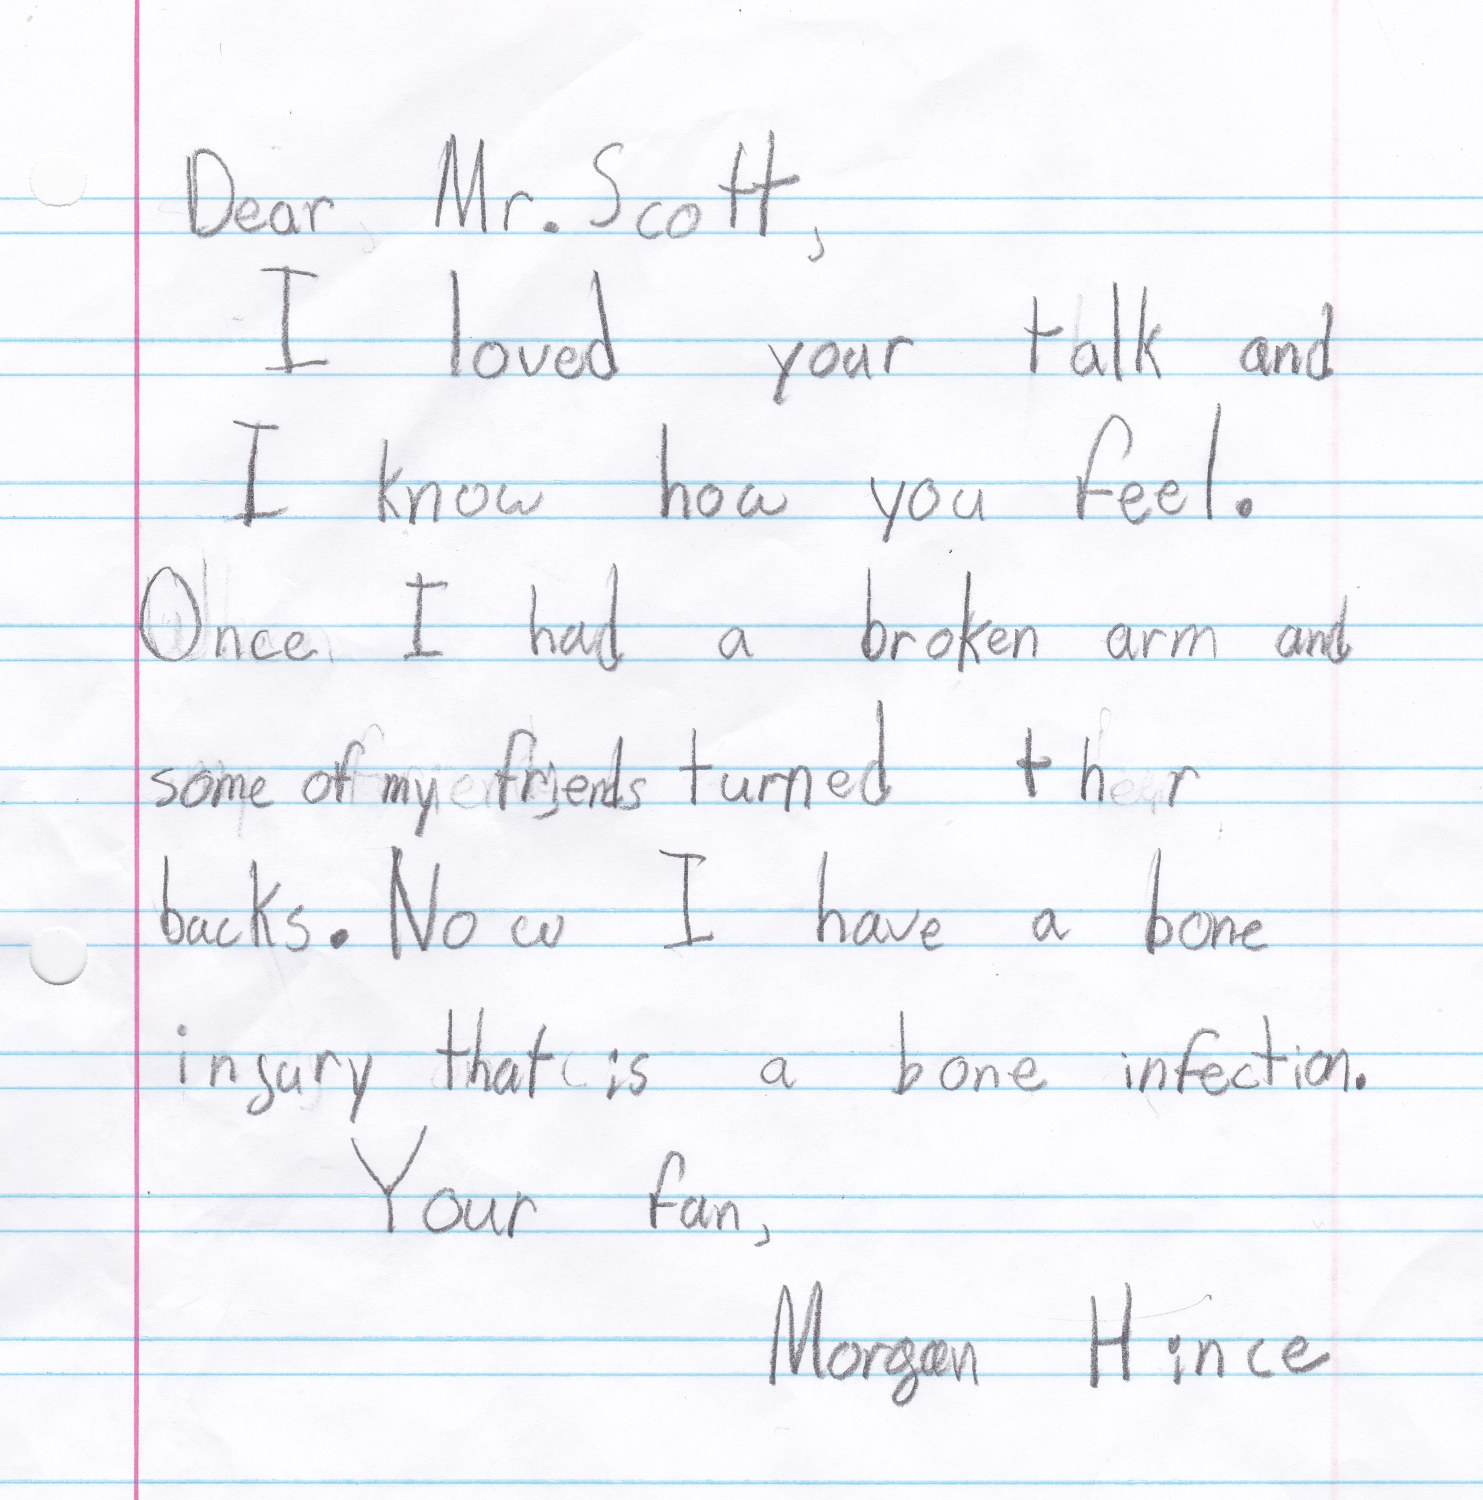 Dear Mr. Scott,
I loved your talk and
I know how you feel.
Once I had a broken arm and
some of my friends turned ther
backs. Now I have a bone
injury that is a bone infection.
Your fan,
Morgan Hince